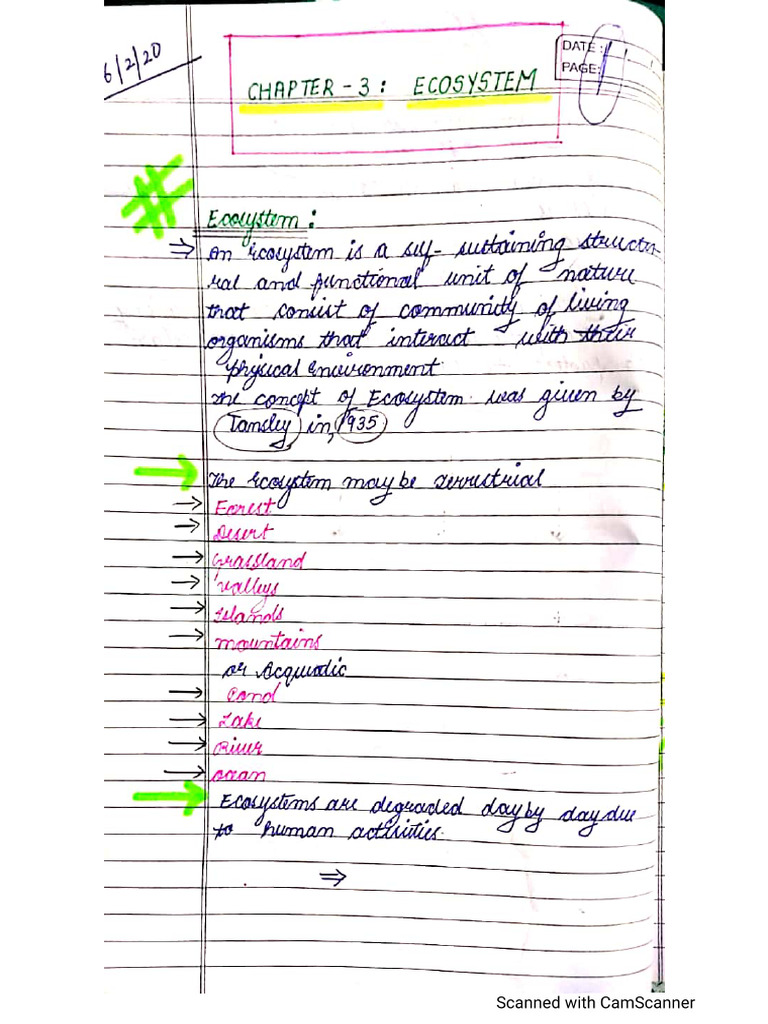 6/2/20
DATE:
PAGE: 1
CHAPTER - 3 : ECOSYSTEM
#
Ecosystem :
⇒ An Ecosystem is a self- sustaining structu-
ral and functional unit of nature
that consist of community of living
organisms that interact with their
physical environment.
The concept of Ecosystem was given by
Tansley in, 1935
→ The Ecosystem may be terrustrial
→ Forest
→ Desert
→ Grassland
→ Valleys
→ Islands
→ mountains
or Acquatic
→ Pond
→ Lake
→ River
→ ocean
→ Ecosystems are degraded day by day due
to human activities.
⇒
Scanned with CamScanner